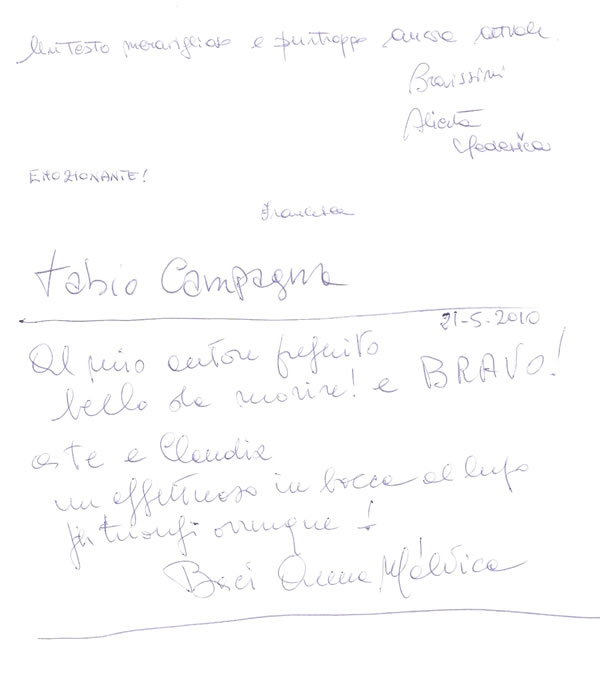 Un testo meraviglioso e purtroppo ancora attuale.
Bravissimi
Federica
EMOZIONANTE!
Francesca
Fabio Campagna
21-5-2010
Al mio autore preferito
bello da morire! e BRAVO!
a te e Claudia
un affettuoso in bocca al lupo
per trionfi ovunque!
Baci Anna Malvica